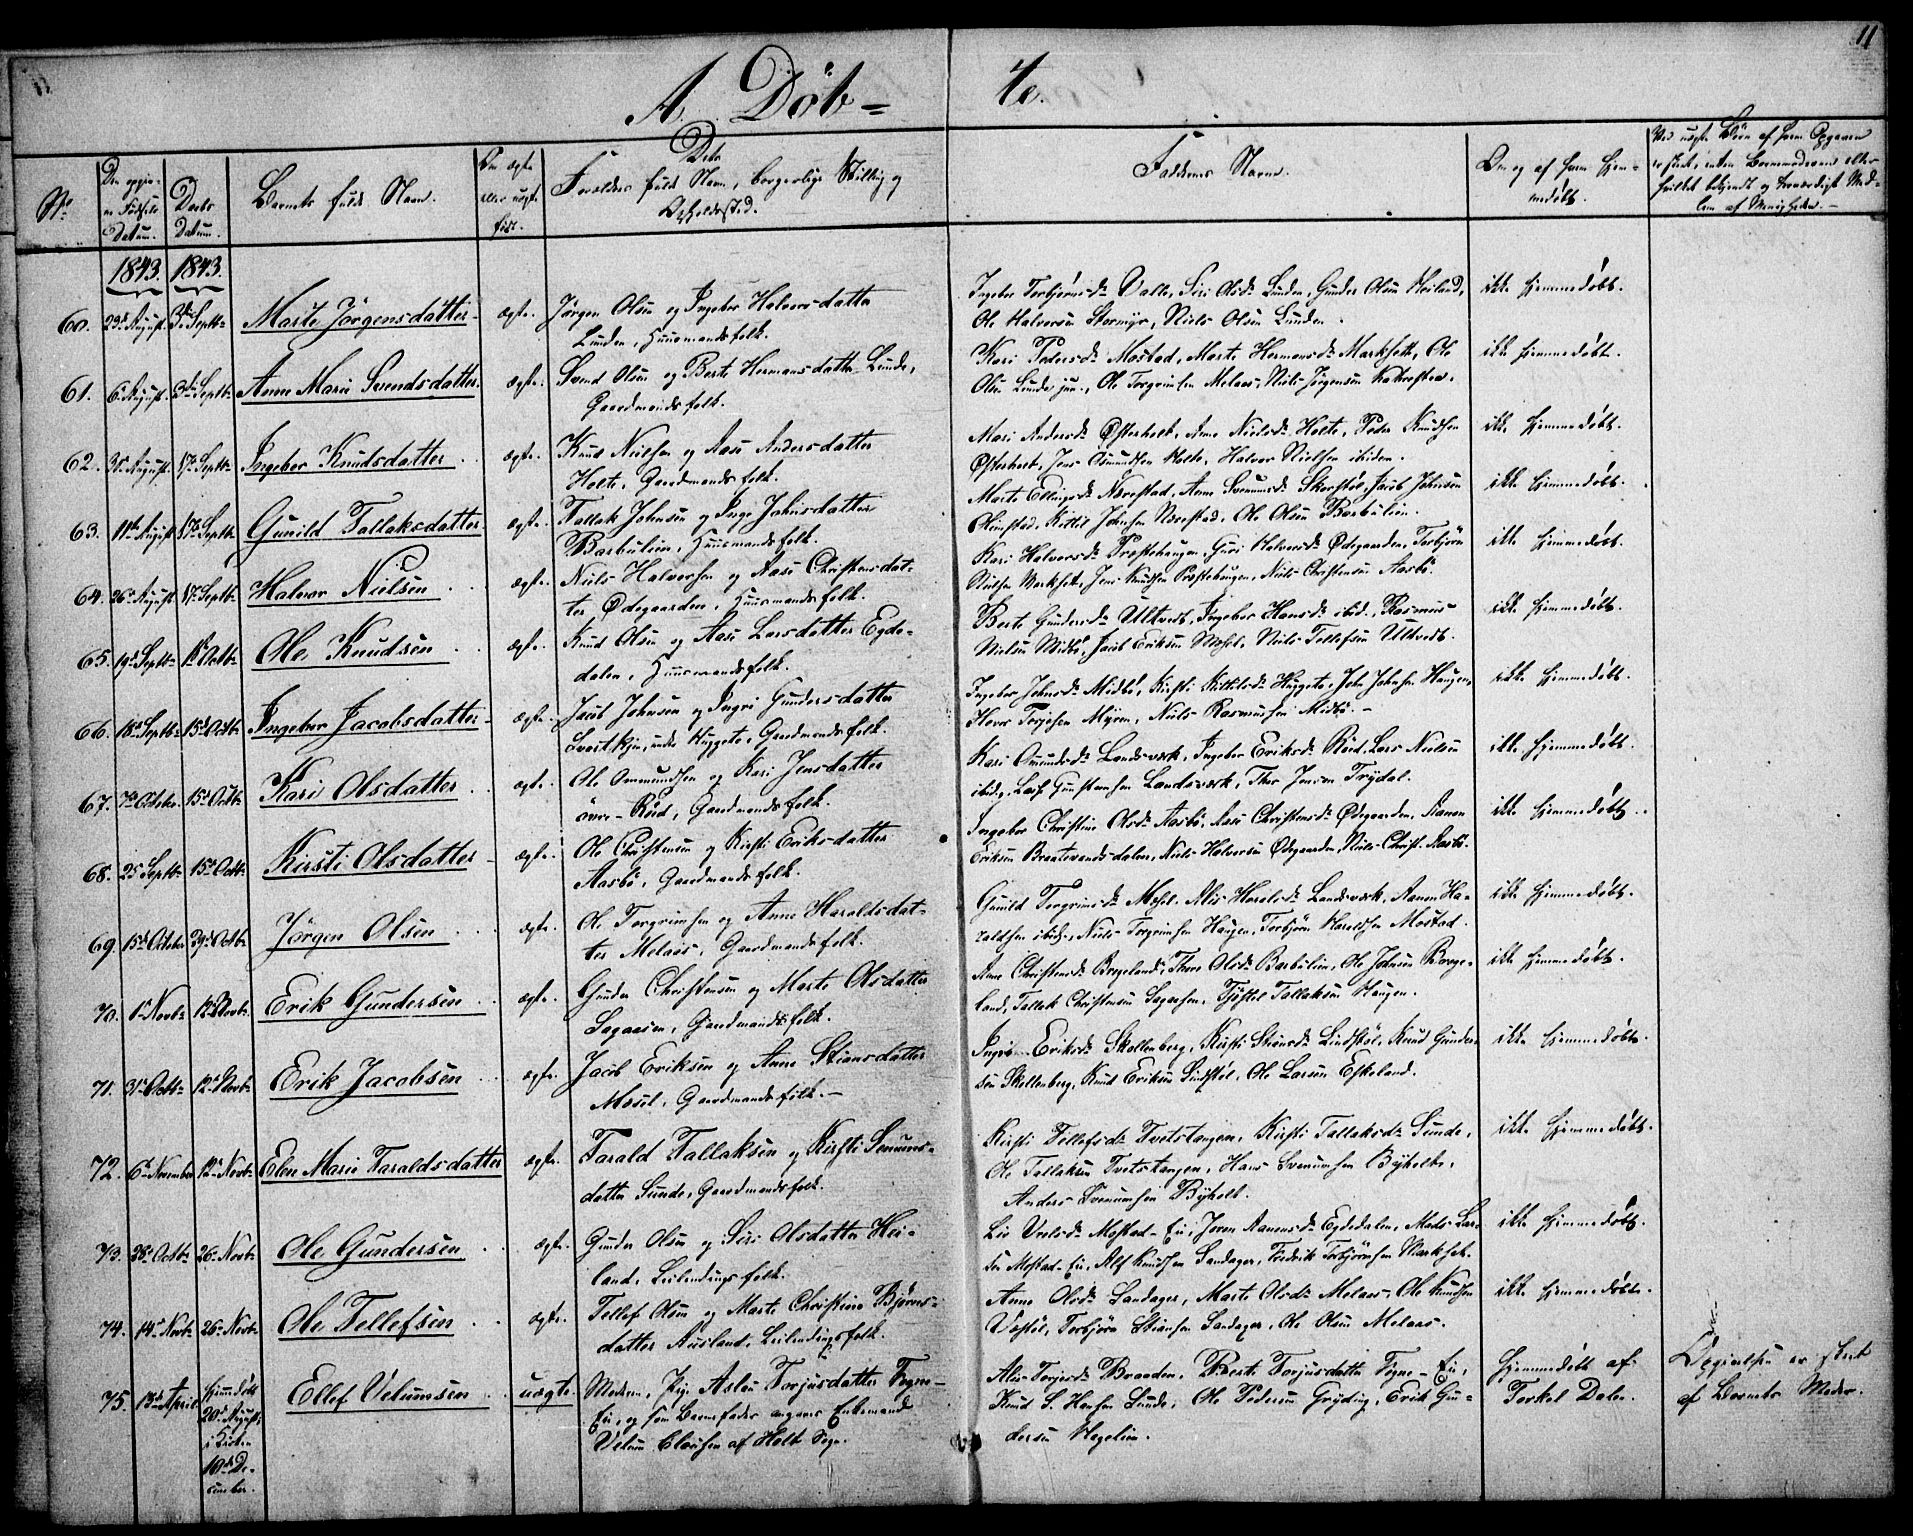 11
A. Døb-
te.
No
Den opgiv-
ne Fødsels
Datum.
Daabs
Datum.
Barnets fulde Navn.
Om ægte
eller uægte
fød.
Dets
Forældres fulde Navn, borgerlige Stilling og
Opholdssted.
Faddernes Navne.
Om og af hvem hjem-
medøbt.
Ved uægte Børn af hvem Opgaven
er skeet, enten Barnemoderen eller
hvilket bekjendt og troværdigt Med-
lem af Menigheden.
1843. 1843.
60. 23de August. 3de Septbr Marte Jörgensdatter ægte. Jörgen Olsen og Ingebor Halvorsdatter
Lunden, Huusmandsfolk.
Ingebor Torbjörnsdr Valle, Siri Olsdr Lunden, Gunder Olsen Heiland,
Ole Halvorsen Stormyr, Niels Olsen Lunden.
ikke hjemmedøbt.
61. 6te August. 3de Septbr Anne Marie Svendsdatter ægte. Svend Olsen og Berte Hermansdatter Lunde,
Gaardmandsfolk.
Kari Pedersdr Mostad, Marte Hermansdr Marksett, Ole
Olsen Lunde jun., Ole Torgrimsen Melaas, Niels Jörgensen
ikke hjemmedøbt.
62. August. 17de Septbr Ingebor Knudsdatter ægte. Knud Nielsen og Aase Andersdatter
Holte, Gaardmandsfolk.
Mari Andersdr Østerholt, Anne Nielsdr Holte, Peder Knudsen
Østerholt, Jens Osmundsen Holte, Halvor Nielsen ibidem.
ikke hjemmedøbt.
63. 11te August 17de Septbr Gunild Tallaksdatter ægte. Tallak Johnsen og Inge Johnsdatter
Barbulien, Huusmandsfolk.
Marte Ellingsdr Nærestad, Anne Svenumsdr Skorstøl, Jacob Johnsen
Olimstad, Kittil Johnsen Nærestad, Ole Olsen Barbulien.
ikke hjemmedøbt.
64. 26de August 17de Septbr Halvor Nielsen ægte. Niels Halvorsen og Aase Christensdat-
ter Ødegaarden, Huusmandsfolk.
Kari Halvorsdr Præstehaugen, Guri Halvorsdr Ødegaarden, Torbjörn
Nielsen Marksett, Jens Knudsen Præstehaugen, Niels Christensen Aasbö.
ikke hjemmedøbt.
65. 19de Septbr 1ste Octbr Ole Knudsen ægte. Knud Olsen og Aase Larsdatter Egde-
dalen, Huusmandsfolk.
Berte Gundersdr Ulltvedt, Ingebor Hansdr ibid., Rasmus
Nielsen Midbö, Jacob Eriksen Mosel, Niels Tellefsen Ulltvedt.
ikke hjemmedøbt.
66. 18de Septbr 15de Octbr Ingebor Jacobsdatter ægte. Jacob Johnsen og Ingri Gundersdatter
Svartkjin, under Huggeto, Gaardmandsfolk.
Ingebor Johnsdr Midbö, Kirsti Kittilsdr Huggeto, John Johnsen Haugen,
Hover Terjesen Myren, Niels Rasmussen Midbö.
ikke hjemmedøbt.
67. 7de October. 15de Octbr Kari Olsdatter ægte. Ole Ommundsen og Kari Jensdatter
övre-Röed, Gaardmandsfolk.
Kari Omundsdr Landsverk, Ingebor Eriksdr Röed, Lars Nielsen
ibid., Leif Gunstensen Landsverk, Thor Jensen Trydal.
ikke hjemmedøbt.
68. 25de Septbr 15de Octbr Kirsti Olsdatter ægte. Ole Christensen og Kirsti Eriksdatter
Aasbö, Gaardmandsfolk.
Ingebor Christine Olsdr Aasbö, Aase Christensdr Ødegaarden, Aanen
Eriksen Brantevandsdalen, Niels Halvorsen Ødegaarden, Niels Christ. Aasbö.
ikke hjemmedøbt.
69. 15de October 29de Octbr Jörgen Olsen ægte. Ole Torgrimsen og Anne Haraldsdat-
ter Melaas, Gaardmandsfolk.
Gunild Torgrimsdr Mosel, Alis Haralsdr Landsverk, Aanen Ha-
raldsen ibid., Niels Torgrimsen Haugen, Torbjörn Haraldsen Mostad.
ikke hjemmedøbt.
70. 1ste Novbr 12te Novbr Erik Gundersen ægte. Gunder Christensen og Marte Olsdatter
Sagaasen, Gaardmandsfolk.
Anne Christensdr Bregeland, Thore Olsdr Barbulien, Ole Johnsen Brege-
land, Tallak Christensen Sagaasen, Tjöstel Tallaksen Haugen.
ikke hjemmedøbt.
71. 31te Octbr 12te Novbr Erik Jacobsen ægte. Jacob Eriksen og Anne Stiansdatter
Mosel, Gaardmandsfolk.
Eriksdr Skollenberg, Kirsti Stiansdr Lindstöl, Knud Gunder-
sen Skollenberg, Knud Eriksen Lindstöl, Ole Larsen Eskeland.
ikke hjemmedøbt.
72. 6te November 12te Novbr Elen Marie Taraldsdatter ægte. Tarald Tallaksen og Kirsti Svenums-
datter Sunde, Gaardmandsfolk.
Kirsti Tellefsdr Tvetstangen, Kirsti Tallaksdr Sunde,
Ole Tallaksen Tvetstangen, Hans Svenumsen Byholt,
Anders Svenumsen Byholt.
ikke hjemmedøbt.
73. 28de Octbr 26de Novbr Ole Gundersen ægte. Gunder Olsen og Siri Olsdatter Hei-
land, Leilendingsfolk.
Liv Mostad-Ei, Joren Aanensdr Egdedalen, Mads Lar-
sen Mostad-Ei, Alf Knudsen Sandager, Fredrik Torbjörnsen Marksett.
ikke hjemmedøbt.
74. 14de Novbr 26de Novbr Ole Tellefsen ægte. Tellef Olsen og Marte Christine Bjørns-
datter Ausland, Leilendingsfolk.
Anne Olsdr Sandager, Marte Olsdr Melaas, Ole Knudsen
Vestöl, Torbjörn Stiansen Sandager, Ole Olsen Melaas.
ikke hjemmedøbt.
75. 13de April Hjemmedøbt
20de August,
i Kirken
10de De-
cember.
Ellef Velumsen uægte. Moderen, Pige Aslau Torjusdatter Fogne-
Ei, og som Barnefader angives Enkemand
Velum Clausen af Holt Sogn.
Alis Torjesdr Braaden, Berte Torjusdatter Fogne-Ei,
Knud S. Hansen Lunde, Ole Pedersen Gryting, Erik Gun-
dersen Hegelien.
Hjemmedøbt af
Torkel Dalen.
Opgivelsen er skeet
af Barnets Moder.